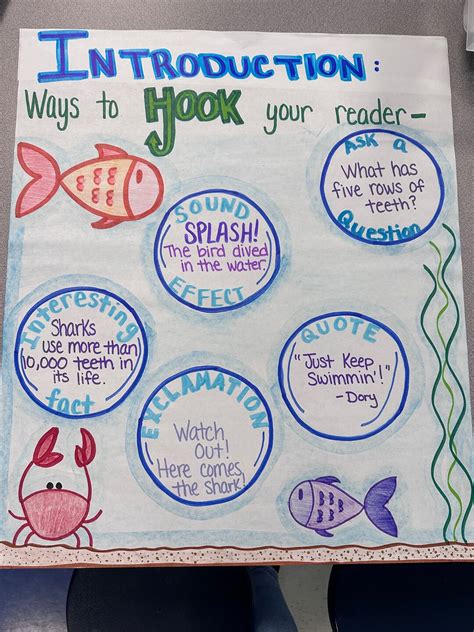 INTRODUCTION:
Ways to HOOK your reader-
Ask a
What has
five rows of
teeth?
Question
SOUND
SPLASH!
The bird dived
in the water.
EFFECT
Interesting
Sharks
use more than
10,000 teeth in
its life.
fact
QUOTE
"Just Keep
Swimmin'!"
-Dory
EXCLAMATION
Watch
Out!
Here comes
the shark!